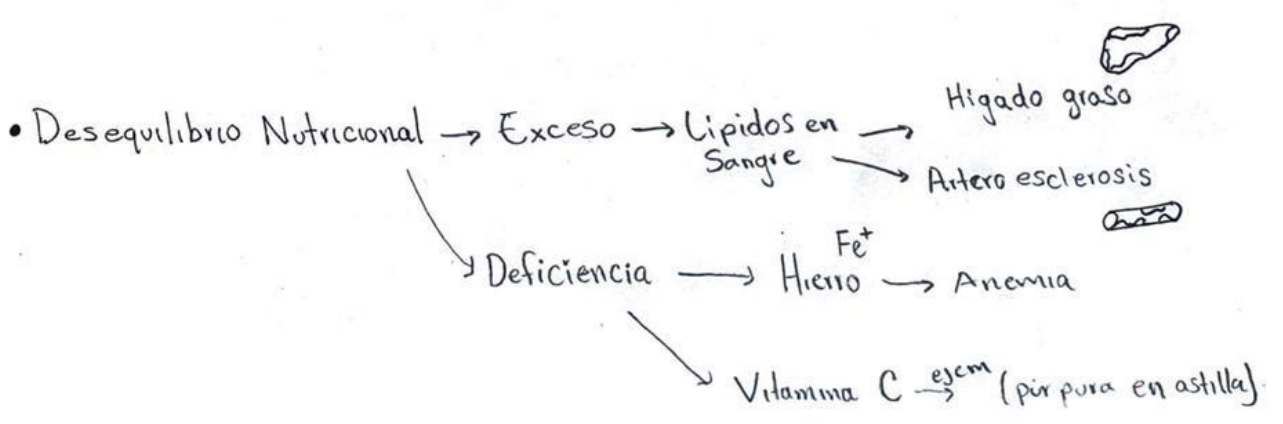 • Desequilibrio Nutricional → Exceso → Lipidos en Sangre → Higado graso
→ Arteroesclerosis
→ Deficiencia → Hierro Fe⁺ → Anemia
→ Vitamina C ejem → (púrpura en astilla)